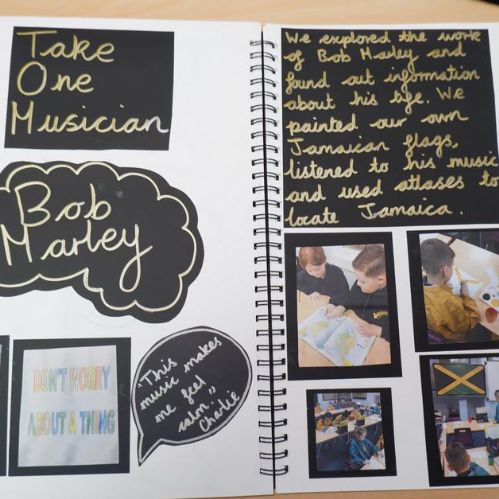 Take
One
Musician
Bob
Marley
DON'T WORRY
ABOUT A THING
"This
music makes
me feel
calm."
Charlie
We explored the work
of Bob Marley and
found out information
about his life. We
painted our own
Jamaican flags,
listened to his music
and used atlases to
locate Jamaica.